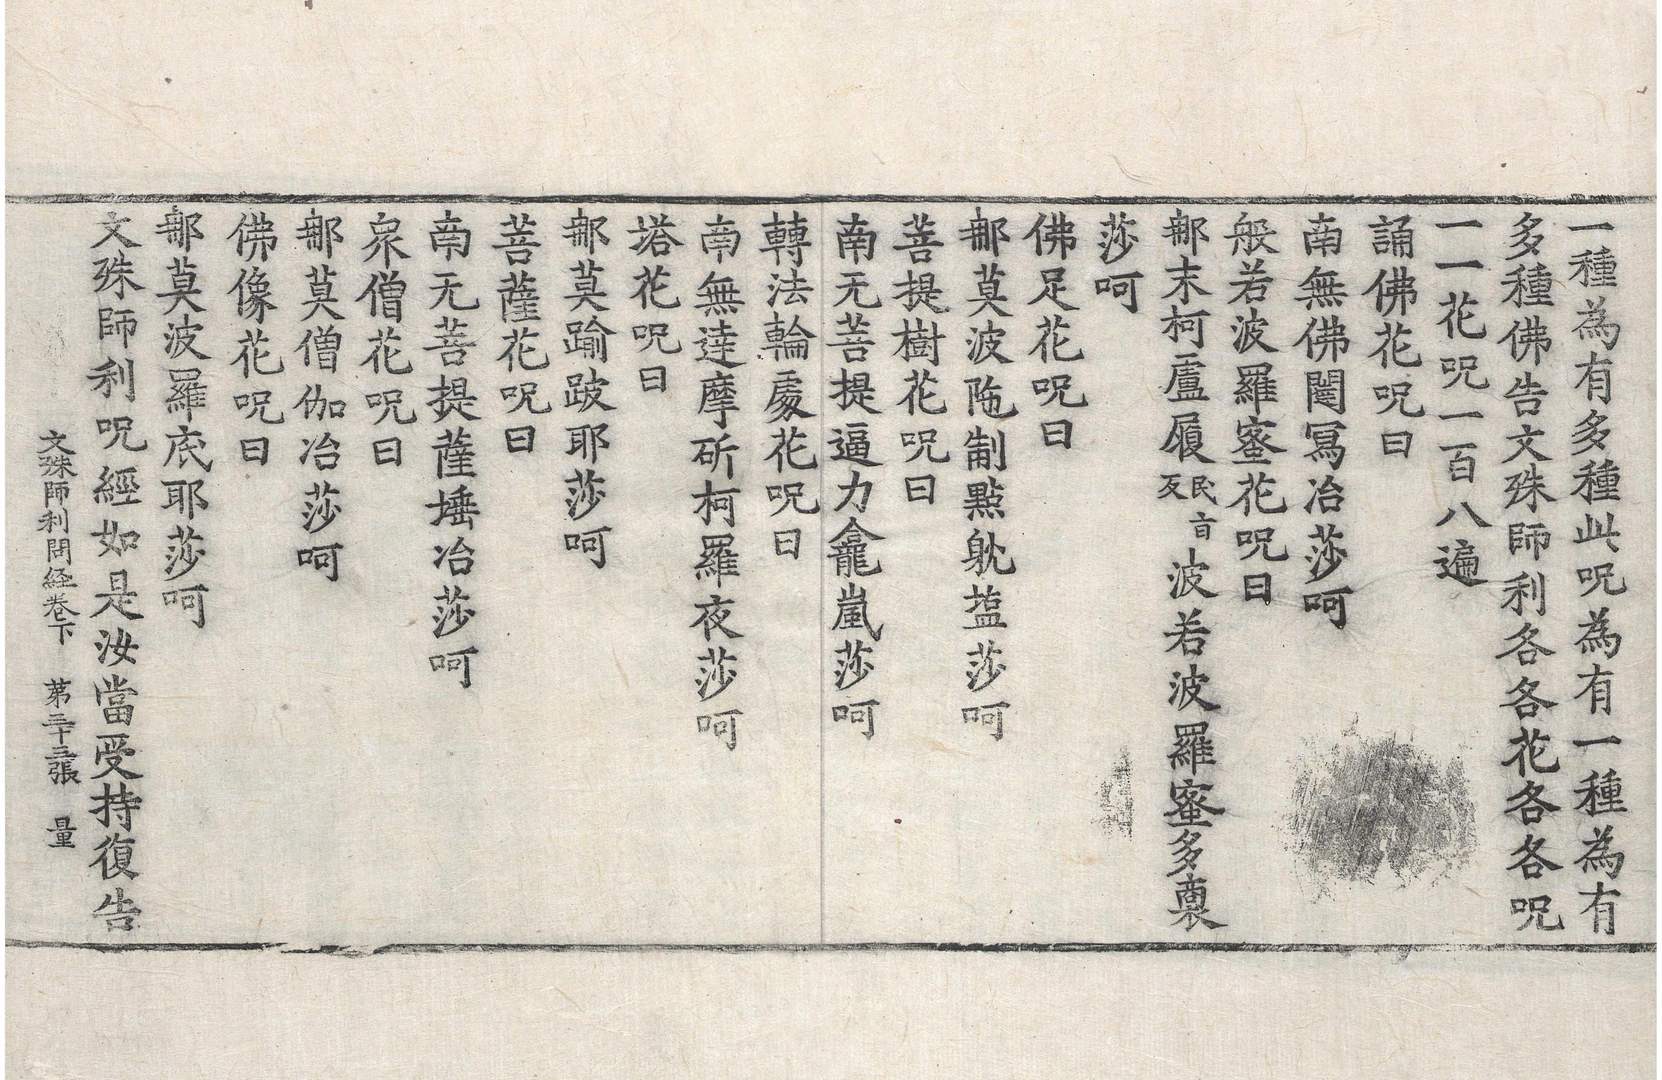 一種為有多種此呪為有一種為有
多種佛告文殊師利各各花各各呪
一一花呪一百八遍
誦佛花呪曰
南無佛闥冩冶莎呵
般若波羅蜜花呪曰
那末柯盧履民盲反波若波羅蜜多裏
莎呵
佛足花呪曰
那莫波陁制點躭㙁莎呵
菩提樹花呪曰
南无菩提逼力龕嵐莎呵
轉法輪處花呪曰
南無達摩斫柯羅夜莎呵
塔花呪曰
那莫踰跛耶莎呵
菩薩花呪曰
南无菩提薩埵冶莎呵
衆僧花呪曰
那莫僧伽冶莎呵
佛像花呪曰
那莫波羅底耶莎呵
文殊師利呪經如是汝當受持復告
文殊師利問経卷下 第二十三張 量